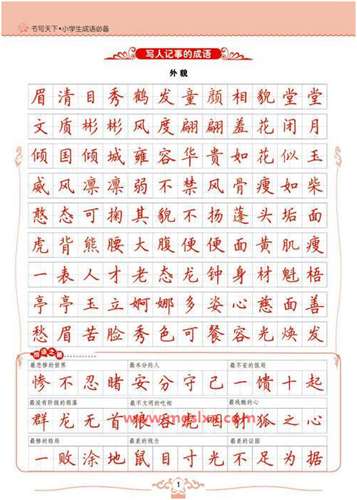 书写天下•小学生成语必备
写人记事的成语
外貌
眉清目秀鹤发童颜相貌堂堂
文质彬彬风度翩翩羞花闭月
倾国倾城雍容华贵如花似玉
威风凛凛弱不禁风骨瘦如柴
憨态可掬其貌不扬蓬头垢面
虎背熊腰大腹便便面黄肌瘦
一表人才老态龙钟身材魁梧
亭亭玉立婀娜多姿心慈面善
愁眉苦脸秀色可餐容光焕发
成语之最
最悲惨的世界 最本分的人 最不安的饭局
惨不忍睹安分守己一馈十起
最没有阶级的部落 最不文明的吃相
群龙无首狼吞虎咽
最惨的结局 最差的视力 最差的证据
一败涂地鼠目寸光不足为据
1